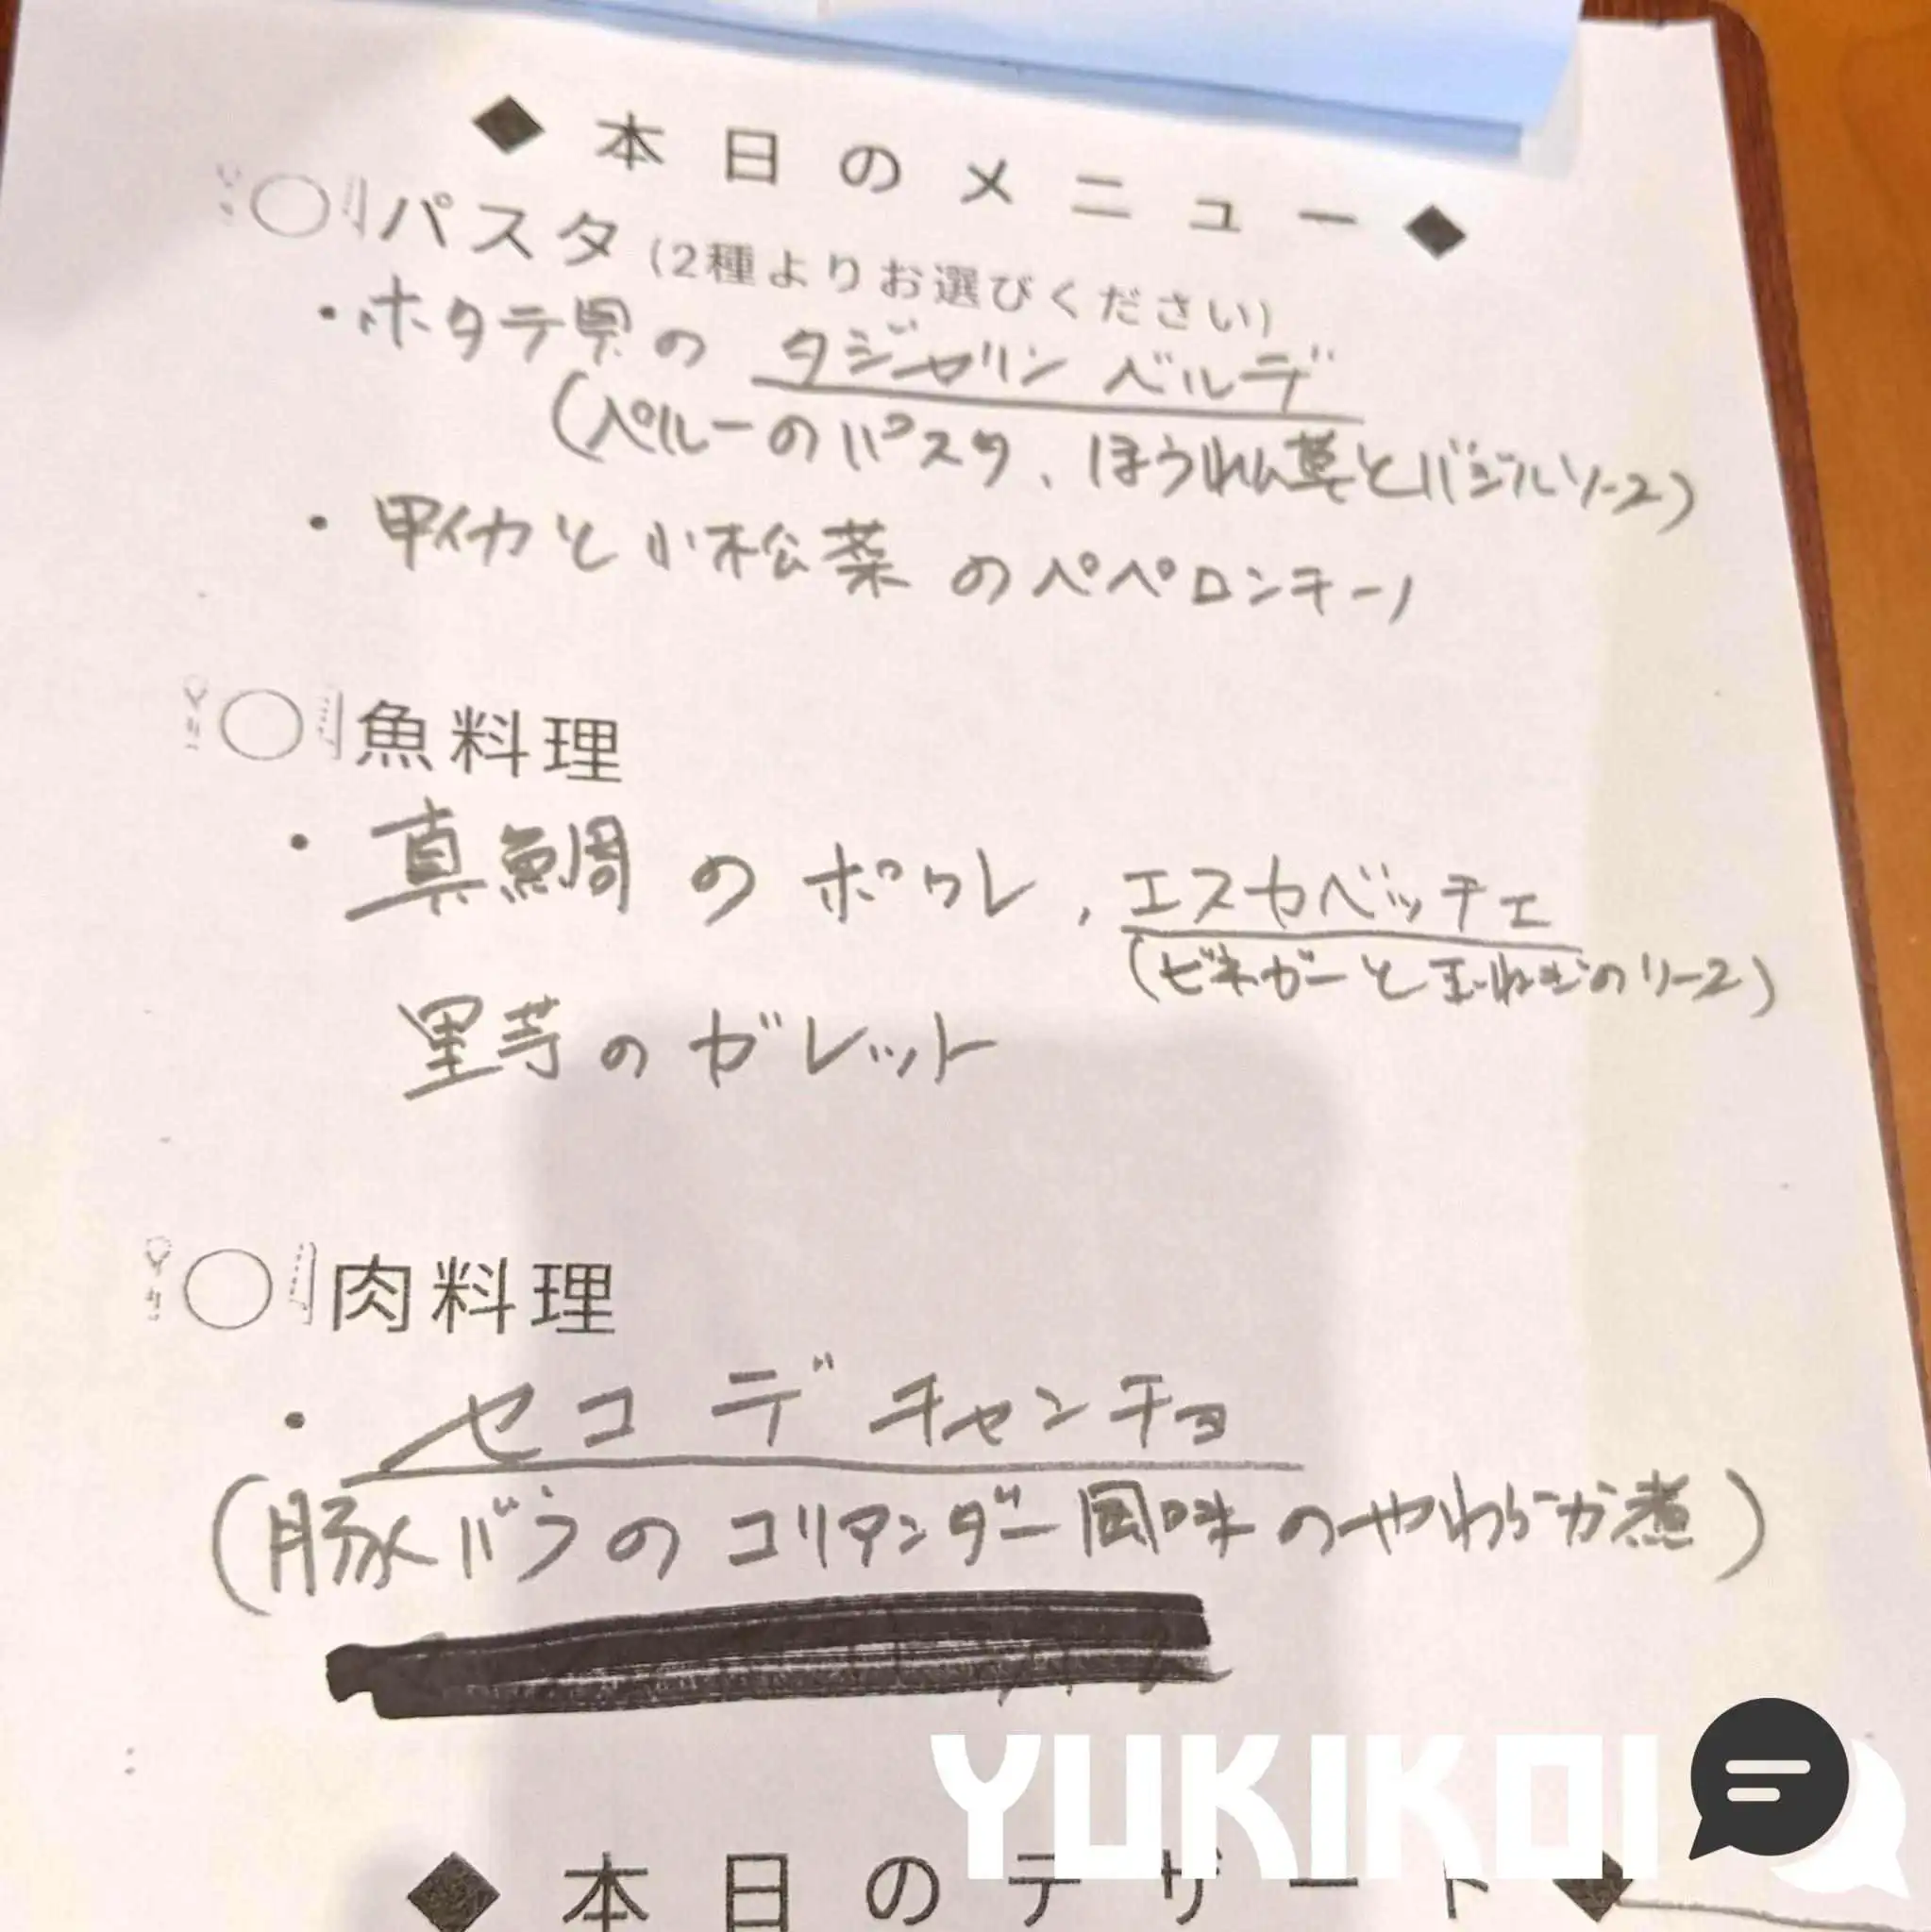 ◆本日のメニュー◆
パスタ(2種よりお選びください)
・ホタテ貝の タジャリン ベルデ
(ペルーのパスタ、ほうれん草とバジルソース)
・甲イカと小松菜のペペロンチーノ
魚料理
・真鯛のポワレ、エスカベッチェ
(ビネガーと玉ねぎのソース)
里芋のガレット
肉料理
・セコ デ チャンチョ
(豚バラのコリアンダー風味のやわらか煮)
YUKIKOI
◆本日のデザート◆